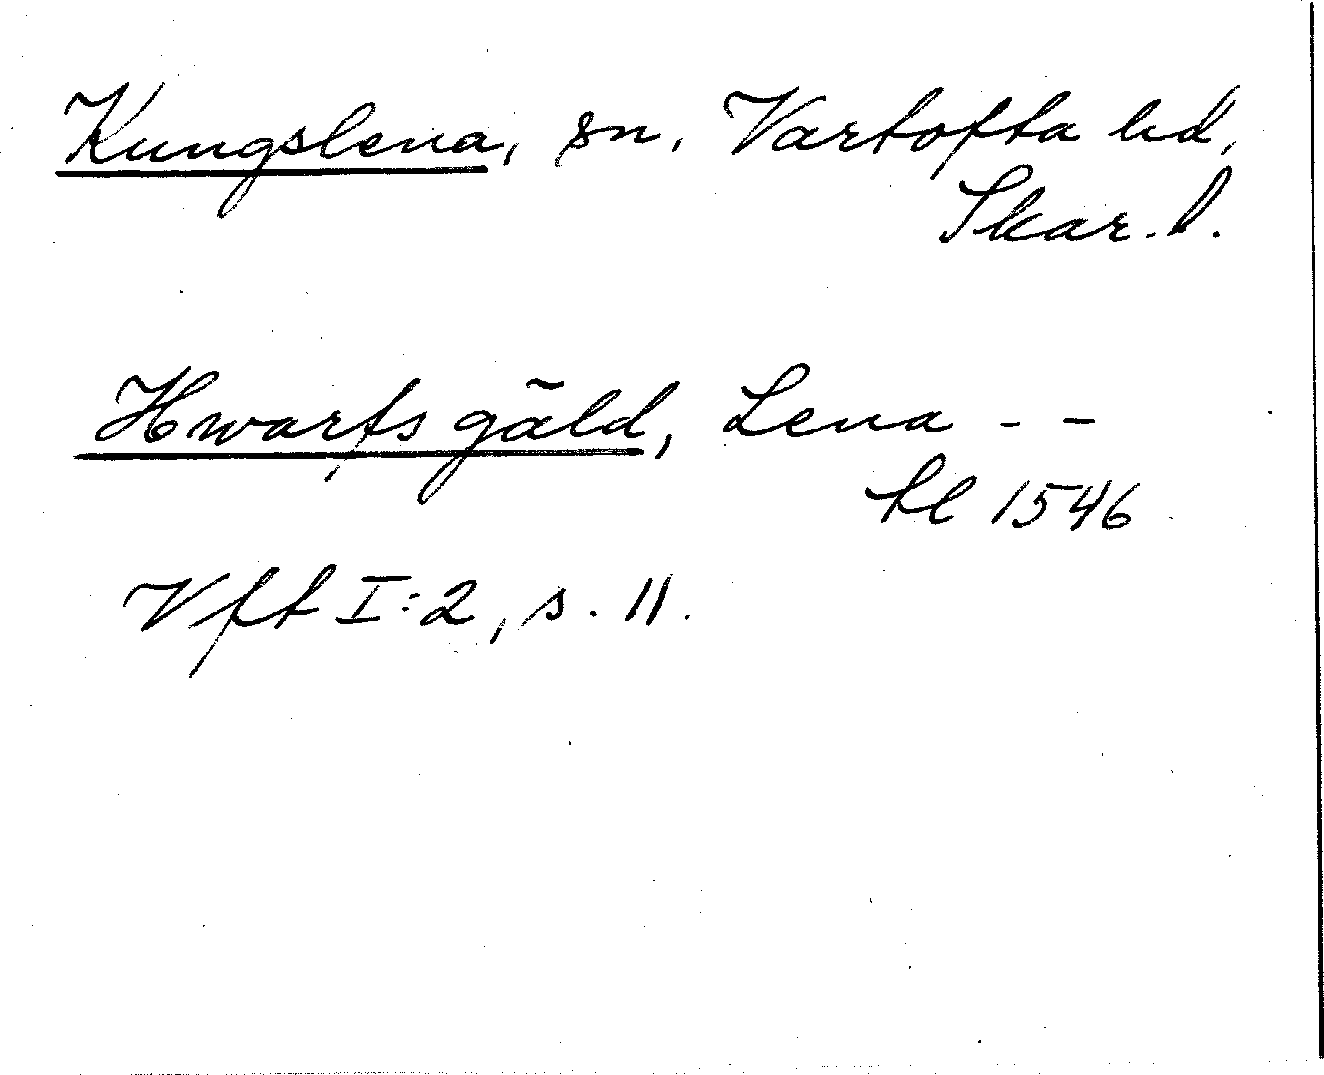 Kungslena, sn, Vartofta hd,
Skar. l.
Hwarfs gäld, Lena - -
tl 1546
Vft I:2, s. 11.